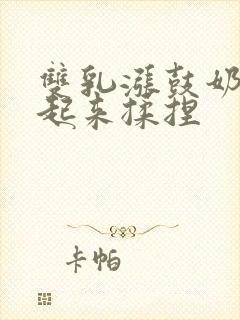 雙乳漲鼓奶
起来揉捏
卡帕